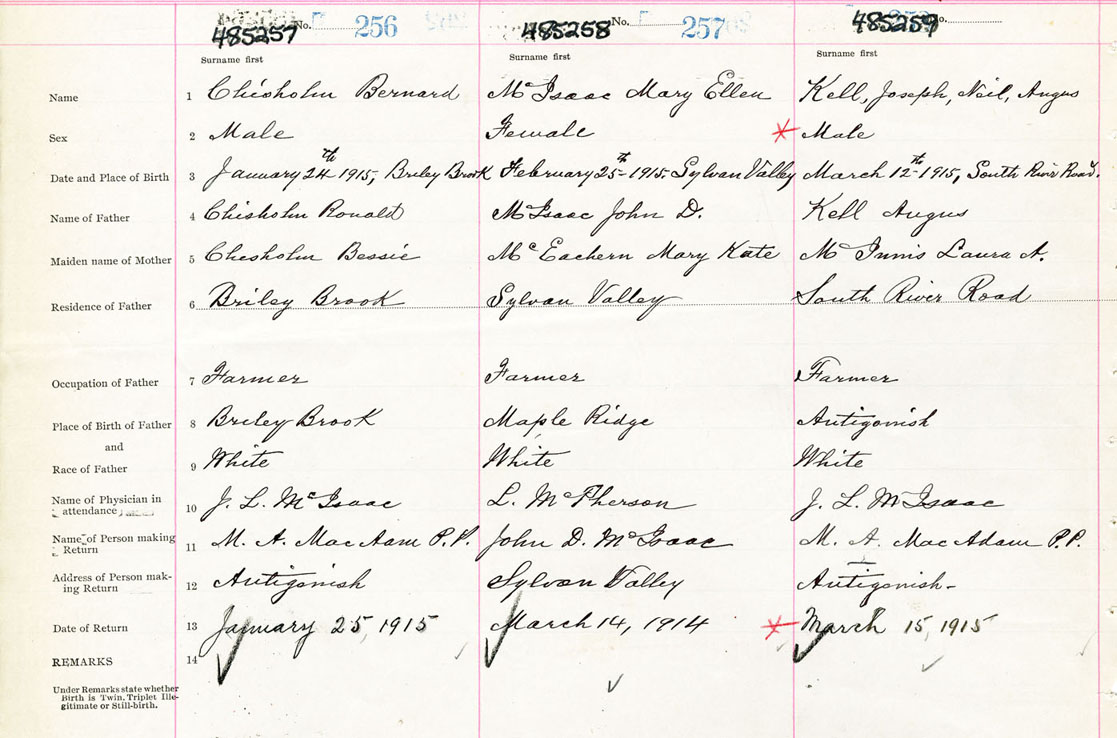 485257 No. 256 485258 No. 257 485259 No.
Surname first Surname first Surname first
Name 1 Chisholm Bernard McIsaac Mary Ellen Kell, Joseph, Neil, Angus
Sex 2 Male Female Male
Date and Place of Birth 3 January 24th 1915, Briley Brook February 25th 1915. Sylvan Valley March 12th 1915, South River Road.
Name of Father 4 Chisholm Ronald McIsaac John D. Kell Angus
Maiden name of Mother 5 Chesholm Bessie McEachern Mary Kate McInnis Laura A.
Residence of Father 6 Briley Brook Sylvan Valley South River Road
Occupation of Father 7 Farmer Farmer Farmer
Place of Birth of Father 8 Briley Brook Maple Ridge Antigonish
and
Race of Father 9 White White White
Name of Physician in
attendance 10 J. L. McIsaac L. McPherson J. L. McIsaac
Name of Person making
Return 11 M. A. MacAdam P.P. John D. McIsaac M. A. MacAdam P.P.
Address of Person mak-
ing Return 12 Antigonish Sylvan Valley Antigonish-
Date of Return 13 January 25, 1915 March 14, 1914 March 15, 1915
REMARKS 14
Under Remarks state whether
Birth is Twin, Triplet Ille-
gitimate or Still-birth.